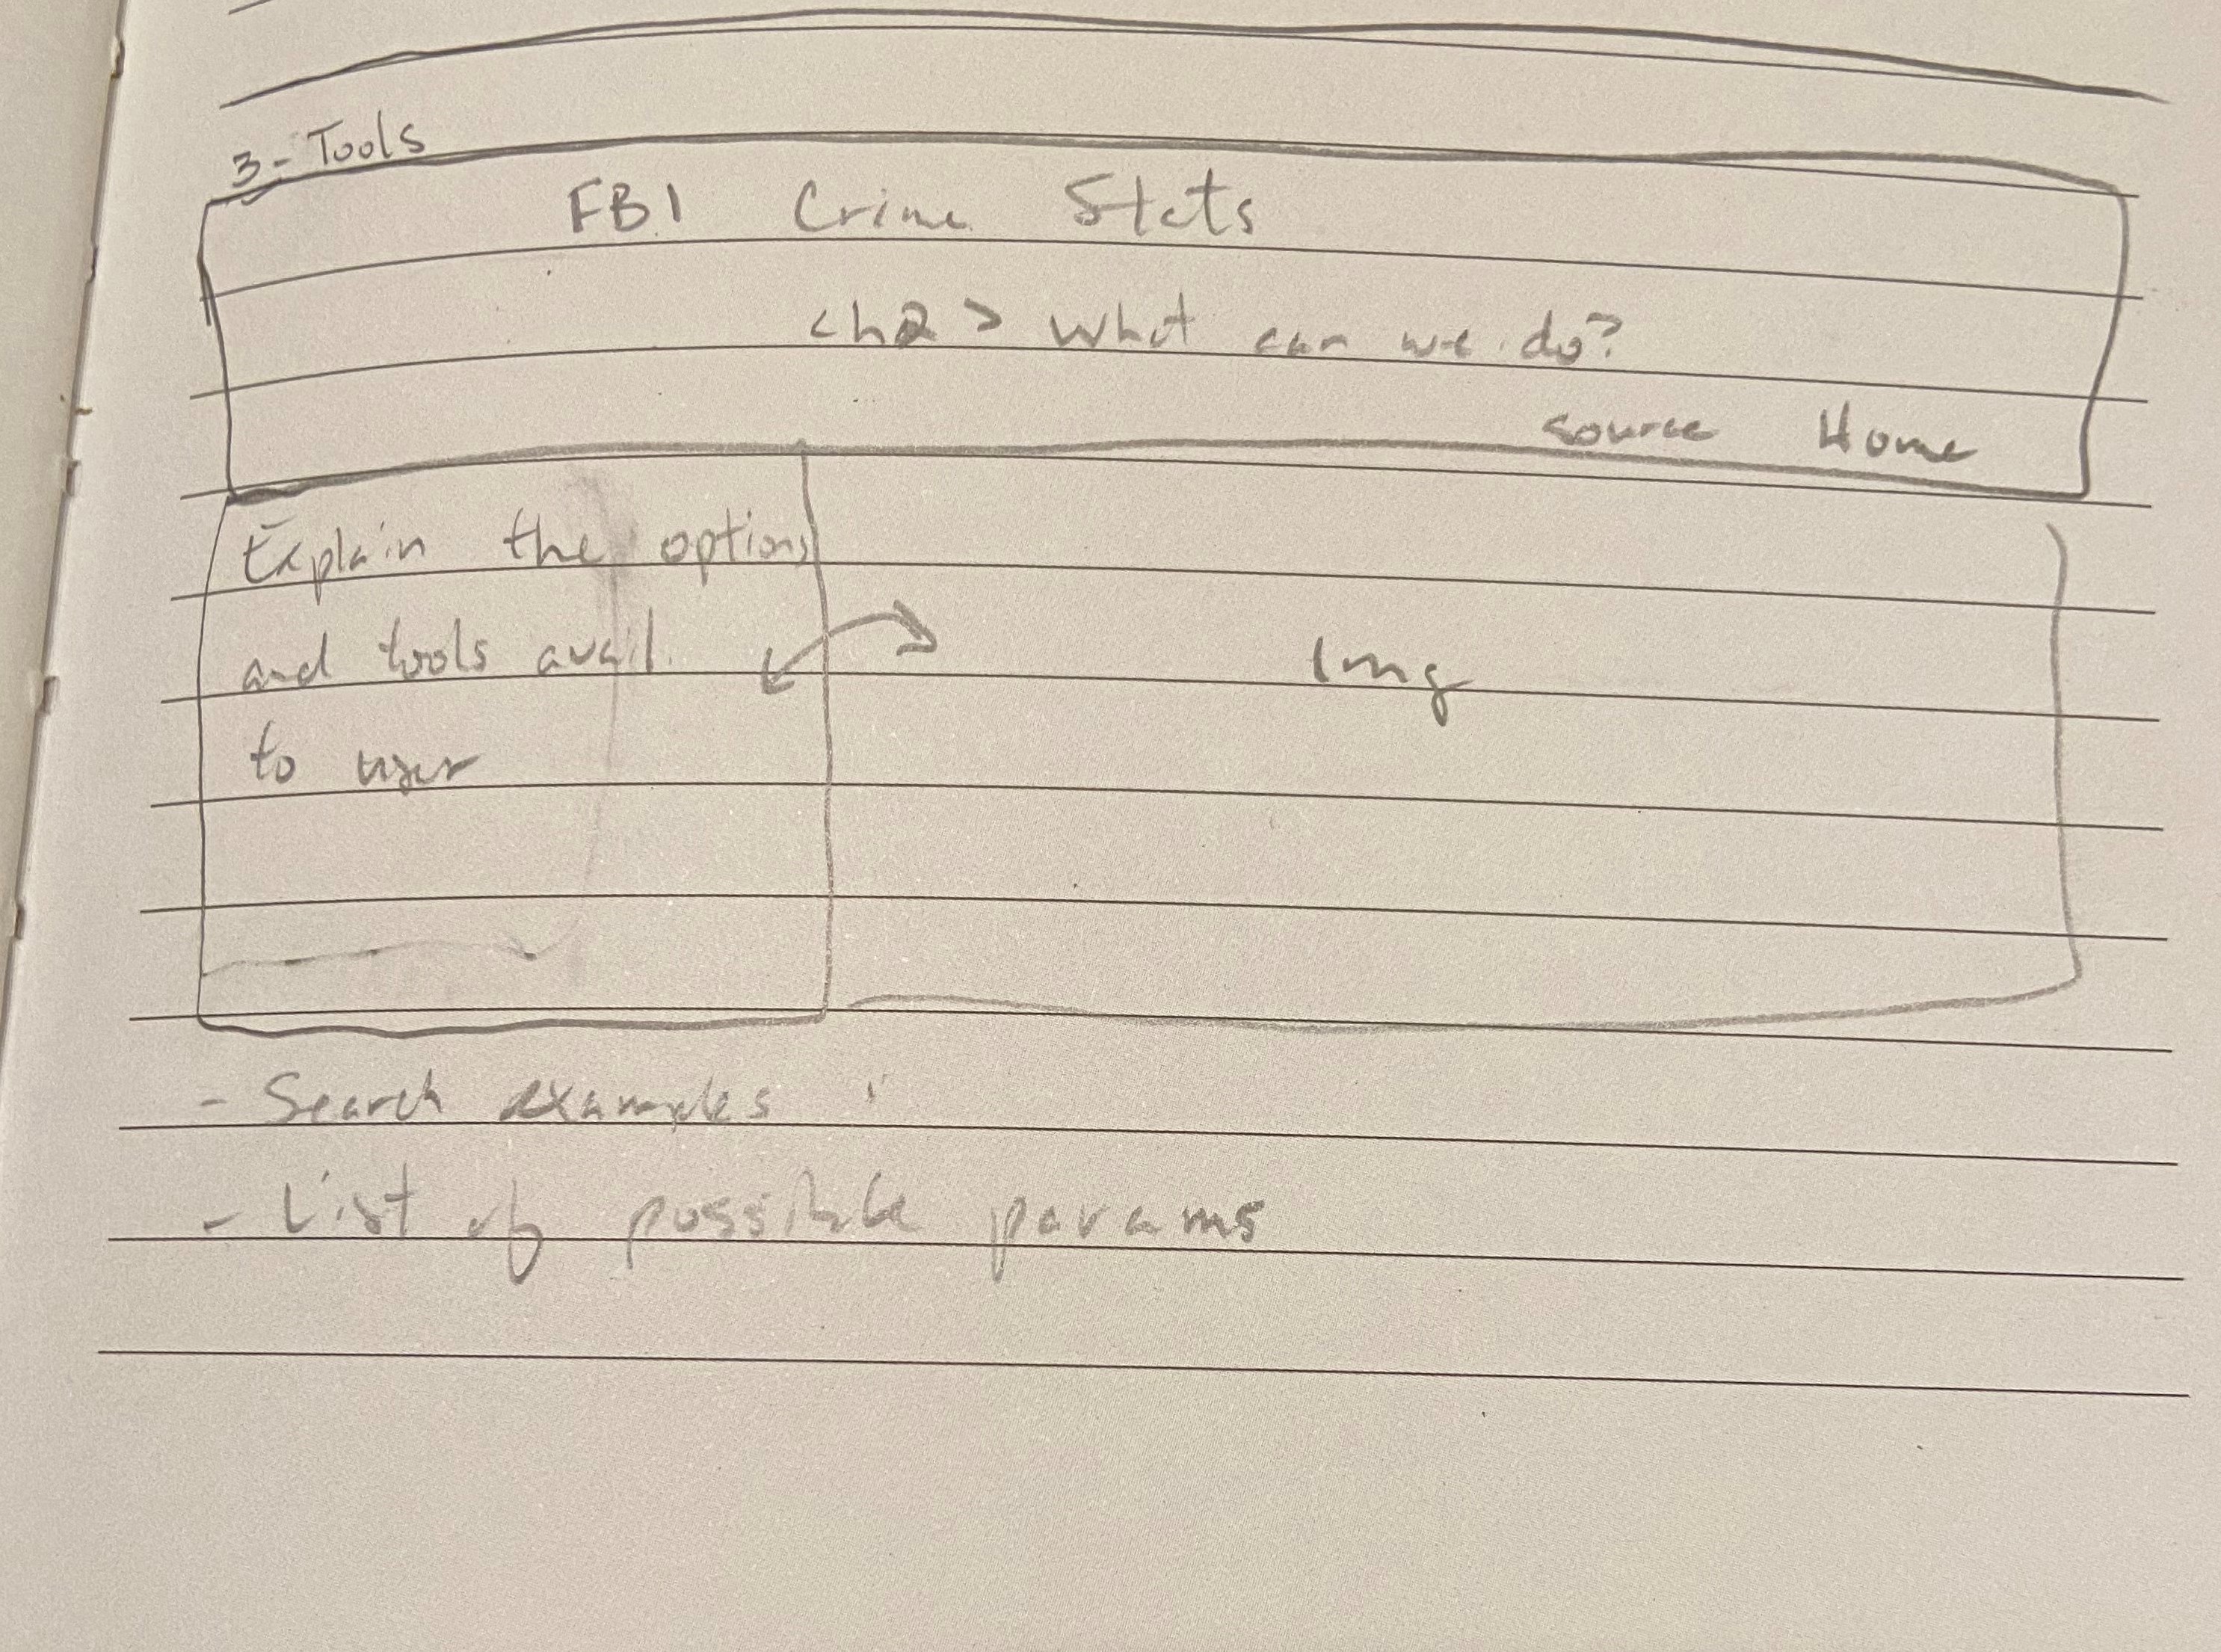 3- Tools
FBI Crime Stats
<h2> What can we do?
source Home
Explain the options
and tools avail.
to user
Img
- Search examples
- List of possible params